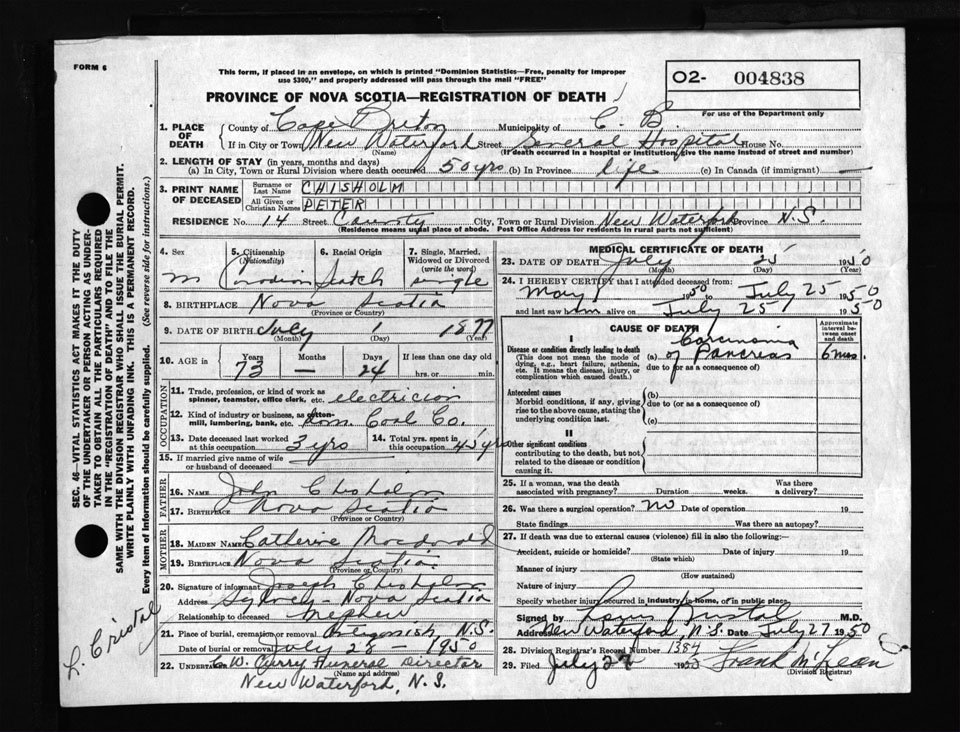 FORM 6
This form, if placed in an envelope, on which is printed "Dominion Statistics—Free, penalty for improper
use $300," and properly addressed will pass through the mail "FREE"
02- 004838
PROVINCE OF NOVA SCOTIA—REGISTRATION OF DEATH
For use of the Department only
1. PLACE OF DEATH
County of Cape Breton Municipality of C. B.
If in City or Town New Waterford Street General Hospital House No.
(Name) (If death occurred in a hospital or institution, give the name instead of street and number)
2. LENGTH OF STAY (in years, months and days)
(a) In City, Town or Rural Division where death occurred 50 yrs (b) In Province life (c) In Canada (if immigrant) —
3. PRINT NAME OF DECEASED
Surname or Last Name CHISHOLM
All Given or Christian Names PETER
RESIDENCE No. 14 Street County City, Town or Rural Division New Waterford Province N.S.
(Residence means usual place of abode. Post Office Address for residents in rural parts not sufficient)
4. Sex
5. Citizenship (Nationality)
6. Racial Origin
7. Single, Married, Widowed or Divorced (write the word)
m Canadian Scotch single
8. BIRTHPLACE Nova Scotia
(Province or Country)
9. DATE OF BIRTH July 1 1877
(Month) (Day) (Year)
10. AGE in Years Months Days If less than one day old
73 — 24 hrs. or min.
OCCUPATION
11. Trade, profession, or kind of work as spinner, teamster, office clerk, etc. electrician
12. Kind of industry or business, as cotton-mill, lumbering, bank, etc. Dom. Coal Co.
13. Date deceased last worked at this occupation 3 yrs
14. Total yrs. spent in this occupation 45 yrs
15. If married give name of wife or husband of deceased
FATHER
16. NAME John Chisholm
17. BIRTHPLACE Nova Scotia
(Province or Country)
MOTHER
18. MAIDEN NAME Catherine Macdonald
19. BIRTHPLACE Nova Scotia
(Province or Country)
20. Signature of informant Joseph Chisholm
Address Sydney - Nova Scotia
Relationship to deceased nephew
21. Place of burial, cremation or removal N.S.
Date of burial or removal July 28 - 1950
22. UNDERTAKER W. Curry Funeral Director
(Name and address)
New Waterford, N.S.
MEDICAL CERTIFICATE OF DEATH
23. DATE OF DEATH July 25 1950
(Month) (Day) (Year)
24. I HEREBY CERTIFY that I attended deceased from:
May 1950 to July 25 1950
and last saw him alive on July 25 1950
CAUSE OF DEATH
Approximate interval between onset and death
I
Disease or condition directly leading to death
(This does not mean the mode of dying, e.g., heart failure, asthenia, etc. It means the disease, injury, or complication which caused death.)
(a) Carcinoma of Pancreas 6 mos.
due to (or as a consequence of)
Antecedent causes
Morbid conditions, if any, giving rise to the above cause, stating the underlying condition last.
(b)
due to (or as a consequence of)
(c)
II
Other significant conditions
contributing to the death, but not related to the disease or condition causing it.
25. If a woman, was the death associated with pregnancy? Duration weeks. Was there a delivery?
26. Was there a surgical operation? no Date of operation 19
State findings Was there an autopsy?
27. If death was due to external causes (violence) fill in also the following:—
Accident, suicide or homicide? Date of injury 19
(State which)
Manner of injury
(How sustained)
Nature of injury
Specify whether injury occurred in industry, in home, or in public place
Signed by M.D.
Address New Waterford, N.S. Date July 27 1950
28. Division Registrar's Record Number 1384
29. Filed July 27 1950 Frank McLean
(Division Registrar)
SEC. 46—VITAL STATISTICS ACT MAKES IT THE DUTY
OF THE UNDERTAKER OR PERSON ACTING AS UNDER-
TAKER TO OBTAIN ALL THE PARTICULARS REQUIRED
IN THE "REGISTRATION OF DEATH" AND TO FILE THE
SAME WITH THE DIVISION REGISTRAR WHO SHALL ISSUE THE BURIAL PERMIT.
WRITE PLAINLY WITH UNFADING INK. THIS IS A PERMANENT RECORD.
Every item of Information should be carefully supplied. (See reverse side for instructions.)
L. Cristal